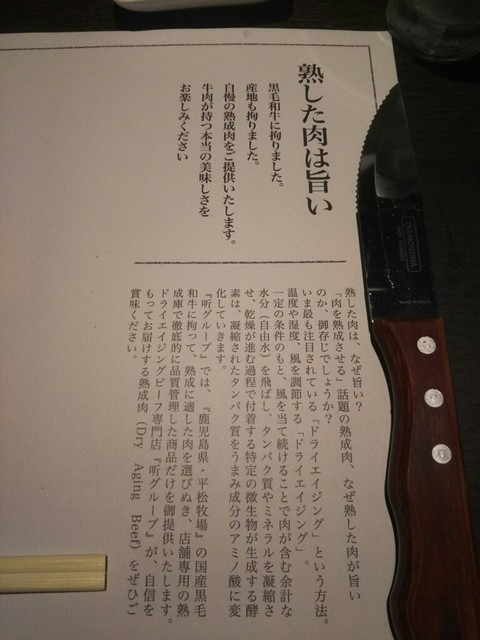 熟した肉は旨い
黒毛和牛に拘りました。
産地も拘りました。
自慢の熟成肉をご提供いたします。
牛肉が持つ本当の美味しさを
お楽しみください
熟した肉は、なぜ旨い？
「肉を熟成させる」話題の熟成肉、なぜ熟した肉が旨い
のか、御存じでしょうか？
いま最も注目されている「ドライエイジング」という方法。
温度や湿度、風を調節する「ドライエイジング」。
一定の条件のもと、風を当て続けることで肉が含む余計な
水分（自由水）を飛ばし、タンパク質やミネラルを凝縮さ
せ、乾燥が進む過程で付着する特定の微生物が生成する酵
素は、凝縮されたタンパク質をうまみ成分のアミノ酸に変
化していきます。
『听グループ』では、『鹿児島県・平松牧場』の国産黒毛
和牛に拘って、熟成に適した肉を選びぬき、店舗専用の熟
成庫で徹底的に品質管理した商品だけを御提供いたします。
ドライエイジングビーフ専門店『听グループ』が、自信を
もってお届けする熟成肉（Dry Aging Beef）をぜひご
賞味ください。
TRAMONTINA